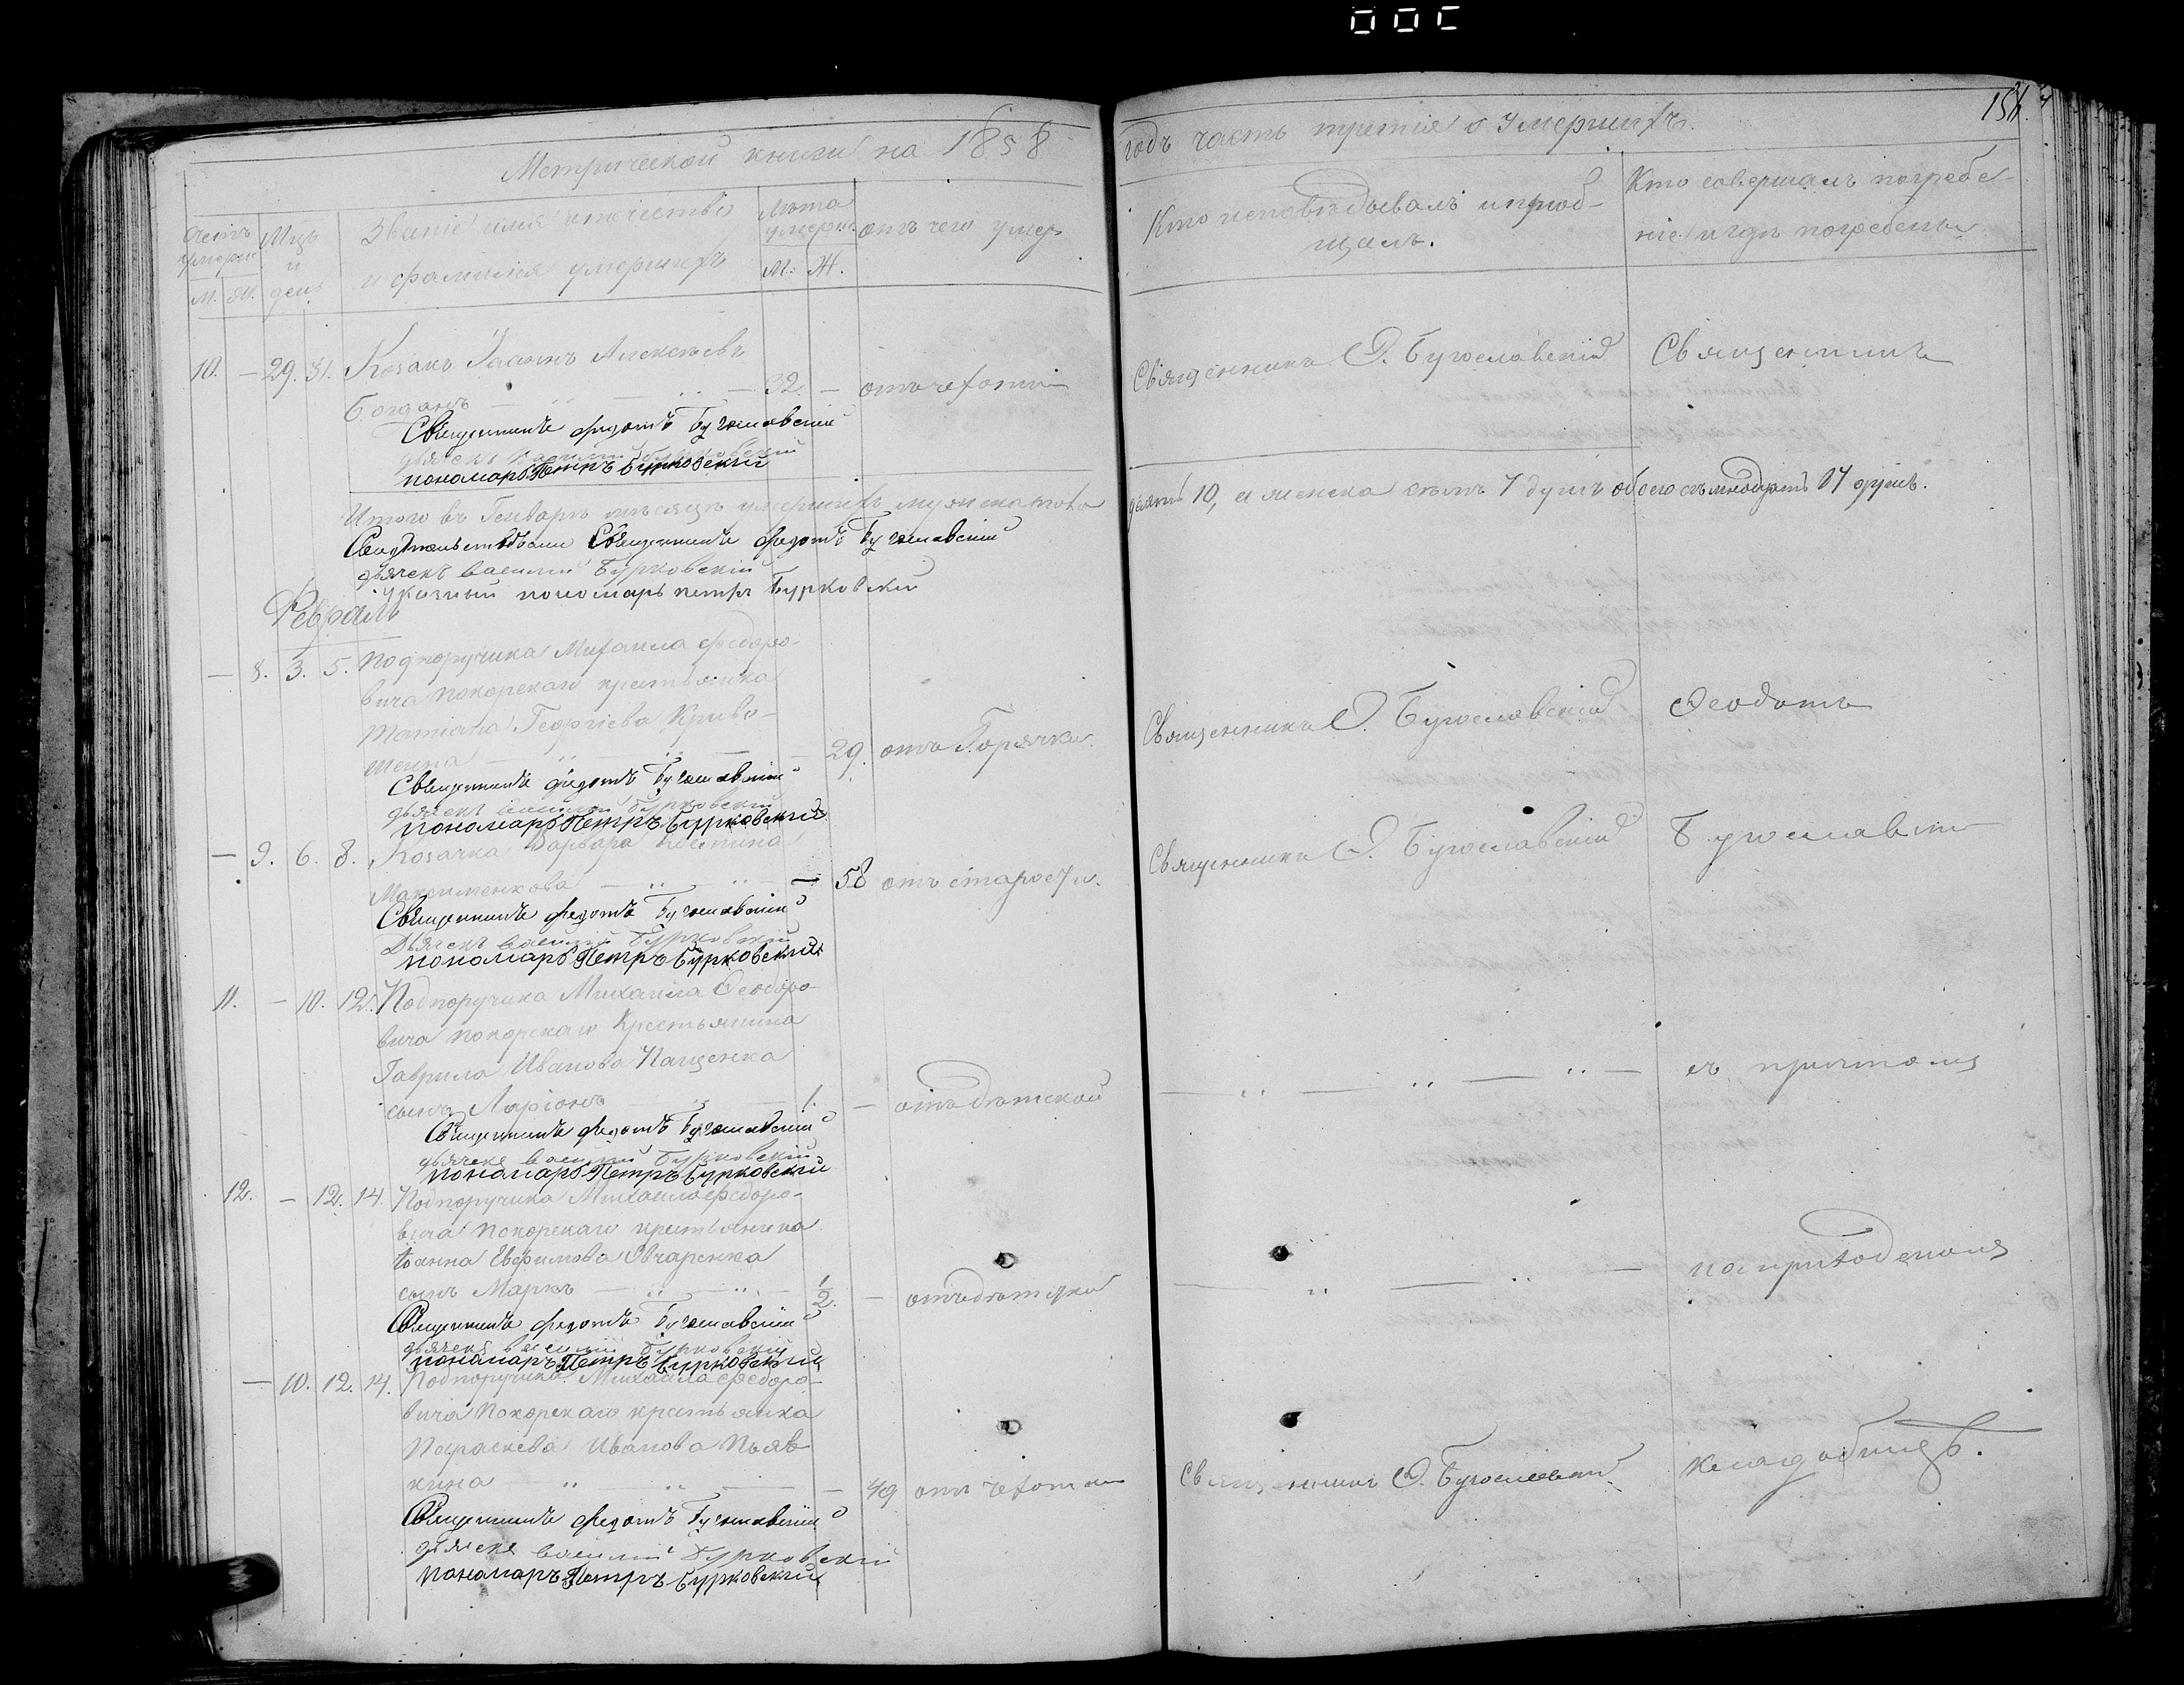 Метрической книги на 1858
годъ часть третія о Умершихъ.
156
Счетъ умерш. М. Ж.
Мцъ и день
Званіе имя отчество
и фамилія умершихъ
Лета умерш. М. Ж.
отъ чего умер
Кто исповѣдывалъ и приоб-
щалъ.
Кто совершалъ погребе-
ніе и гдѣ погребены
10. — 29. 31. Козакъ Алексѣевъ
Богданъ — 32 — отъ чехотки
Священникъ Ѳ. Бугославскій
Священникъ
Священникъ Федотъ Бугославскій
дьячекъ Василій Бурковскій
пономарь Петръ Бурковскій
Итого въ Генварѣ мѣсяцѣ умершихъ мужеска пола
десять 10, а женска семь 7 душъ обоего семнадцать 17 душъ.
Священникъ Федотъ Бугославскій
дьячекъ Василій Бурковскій
указный пономарь Петръ Бурковскій
Февраль
— 8. 3. 5. Подпоручика Михаила Федоро-
вича Покорскаго крестьянка
Татіана Георгіева Криво-
шеина — 29. отъ Горячки
Священникъ Ѳ. Бугославскій
Ѳеодотъ
Священникъ Федотъ Бугославскій
дьячекъ Василій Бурковскій
пономарь Петръ Бурковскій
— 9. 6. 8. Козачка Варвара
Максименкова — 58 отъ старости.
Священникъ Ѳ. Бугославскій
Бугославскій
Священникъ Федотъ Бугославскій
Дьячекъ Василій Бурковскій
пономарь Петръ Бурковскій
11. — 10. 12. Подпоручика Михаила Ѳеодоро-
вича Покорскаго Крестьянина
Гаврила Иванова Пащенка
сынъ Ларіонъ — 1. — отъ дѣтской
съ причтомъ
Священникъ Федотъ Бугославскій
дьячекъ Василій Бурковскій
пономарь Петръ Бурковскій
12. — 12. 14. Подпоручика Михаила Федоро-
вича Покорскаго крестьянина
Іоанна Евфимова Овчаренка
сынъ Маркъ — 1/2. — отъ дѣтской
на приходскомъ
Священникъ Федотъ Бугославскій
дьячекъ Василій Бурковскій
пономарь Петръ Бурковскій
— 10. 12. 14. Подпоручика Михаила Федоро-
вича Покорскаго крестьянка
Параскева Иванова Пьяв
кина — 49 отъ чехотки
Священникъ Ѳ. Бугославскій
кладбищѣ.
Священникъ Федотъ Бугославскій
дьячекъ Василій Бурковскій
пономарь Петръ Бурковскій